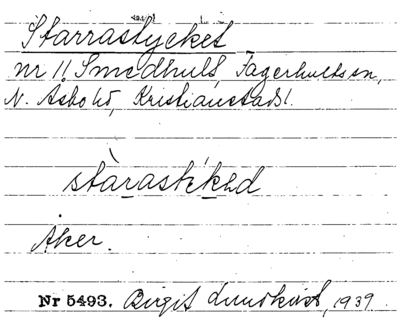 Starrastycket
nr 11 Smedhult, Fagerhults sn,
N. Åsbo hd, Kristianstads l.
stàrasték̀ed
Åker.
Nr 5493. Birgit Lundkvist, 1939